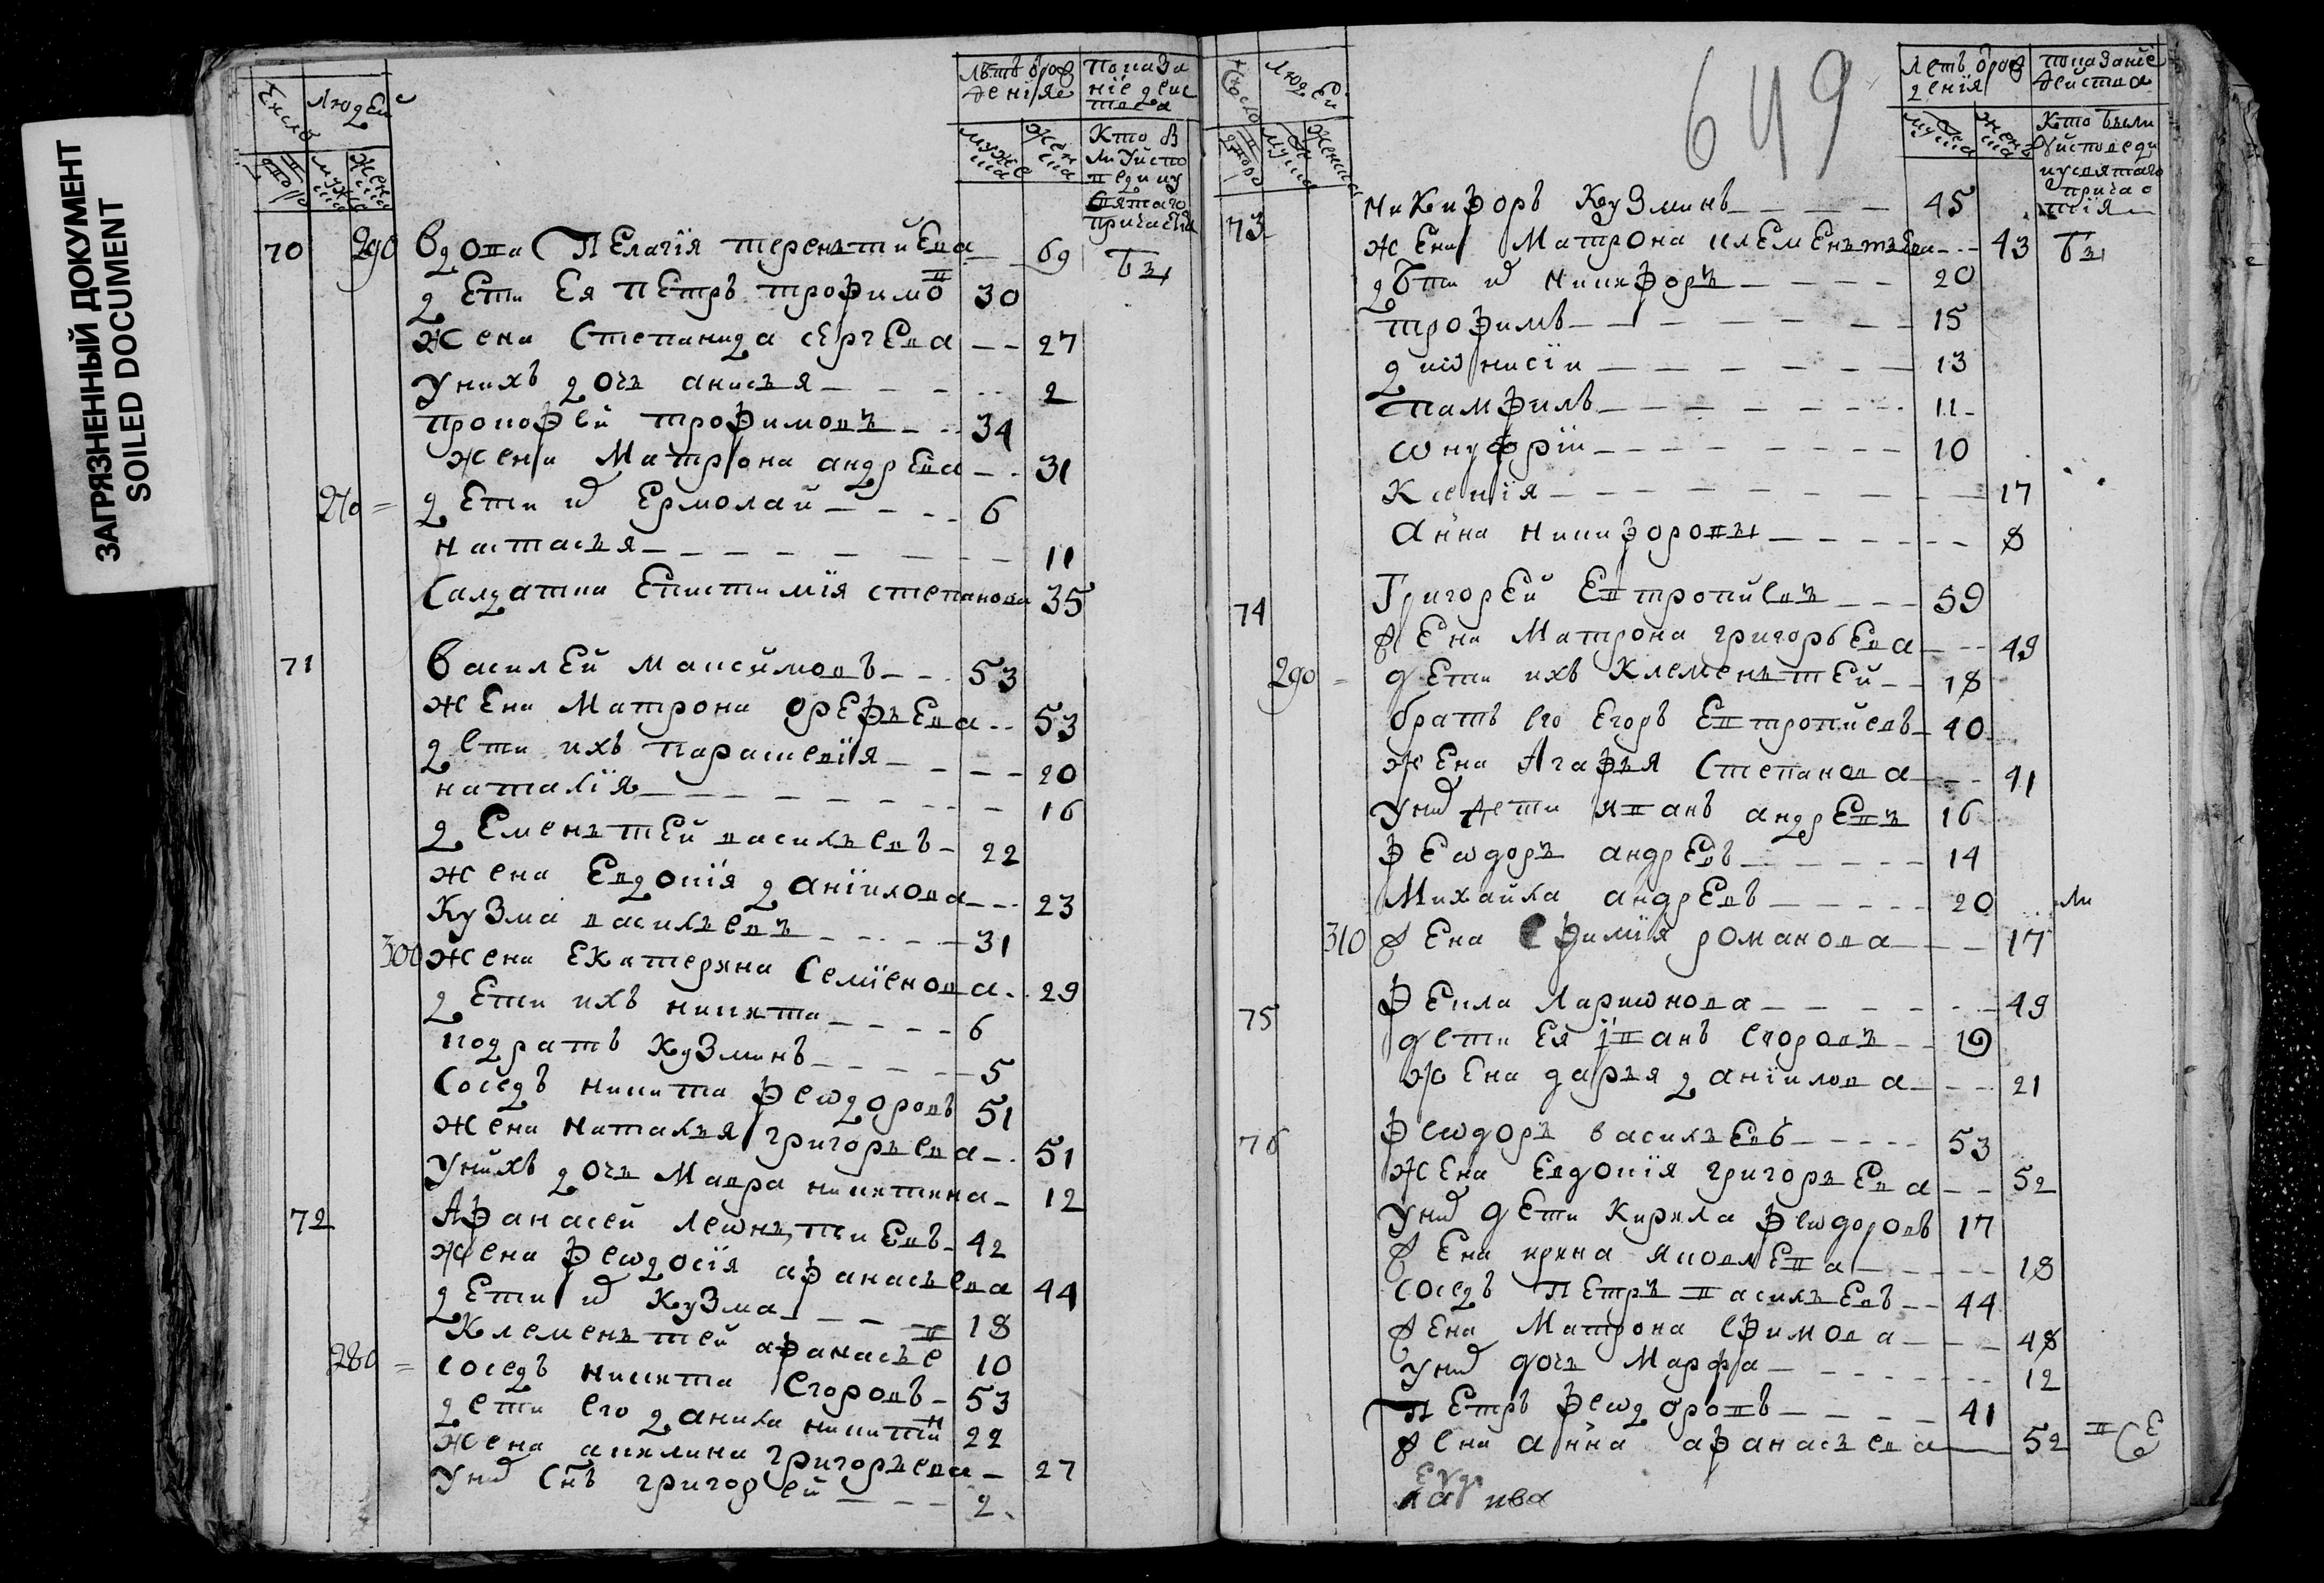 ЗАГРЯЗНЕННЫЙ ДОКУМЕНТ
SOILED DOCUMENT
Число Людей
Лѣтъ
дворо мужеска женска
70 290 вдова Пелагїя терентиева 69
дети Ея Петръ трофимо 30
Жена Степанида сергева 27
Унихъ дочь анисья 2
прокофей трофимовъ 34
жена Матрона андрева 31
270 дети Ермолай 6
настасья 11
Салдатка Епистимїя степанова 35
71 Василей максимовъ 53
жена Матрона Орефьева 53
дети ихъ параскевїя 20
наталїя 16
дементей васильевъ 22
жена Евдокїя данїилова 23
Кузма васильевъ 31
300 жена Екатерина Семїенова 29
дети ихъ никита 6
кодратъ Кузминъ 5
Соседъ никита феѡдоровъ 51
жена наталья григорьева 51
Унихъ дочь Мавра никитина 12
72 Афанасей леѡнътиевъ 42
жена феѡдосїя афанасьева 44
дети Кузма 18
280 Клементей афанасье 10
соседъ никита Егоровъ 53
дети Его данила никити 22
жена акилина григорьева 27
Снъ григорей 2
649
Число людей
73 никифоръ Кузминъ 45
жена Матрона клементьева 43
дѣти никифоръ 20
трофимъ 15
диѡнисїи 13
памфилъ 11
ѡнуфрїи 10
Ксенїя 17
Анна никифоровы 8
74 Григорей Евтропиевъ 59
жена Матрона григорьева 49
290 дети ихъ Клементей 18
братъ его Егоръ Евтропиевъ 40
жена Агафья Степанова 41
дети иванъ андревъ 16
феѡдоръ андревъ 14
Михайла андревъ 20
310 жена Ефимїя романова 17
75 фекла Лариѡнова 49
дети Ея їванъ Егоровъ 19
жена дарья данїилова 21
76 феѡдоръ васильевъ 53
жена Евдокїя григорьева 52
дети Кирила феѡдоровъ 17
жена ирина яковлева 18
соседъ Петръ васильевъ 44
жена Матрона Ефимова 48
дочь Марфа 12
Петръ феѡдоровъ 41
жена анна афанасьева 52